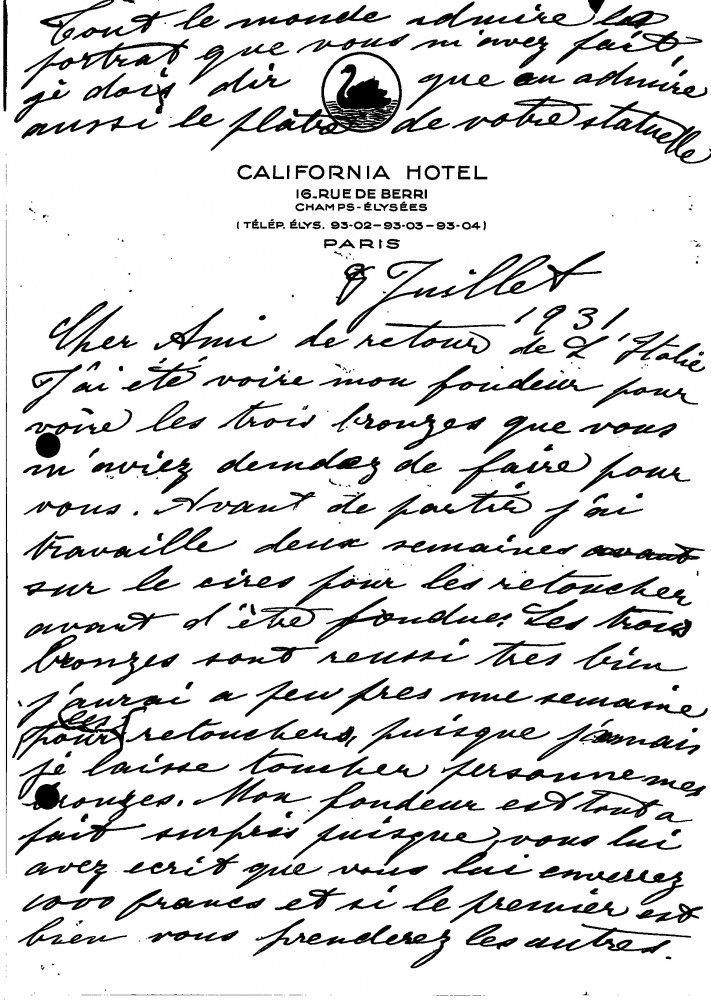 Tout le monde admire le
portrat que vous m'avez fait,
je dois dir que on admire
aussi le plâtre de votre statuelle
CALIFORNIA HOTEL
16_RUE DE BERRI
CHAMPS-ÉLYSÉES
(TÉLÉP. ÉLYS. 93-02-93-03-93-04)
PARIS
8 Juillet
1931
Cher Ami de retour de L'Italie
J'ai été voire mon fondeur pour
voire les trois bronzes que vous
m'aviez demdez de faire pour
vous. Avant de partir j'ai
travaille deux semaines avant
sur le cires pour les retoucher
avant d'être fondue. Les trois
bronzes sont reussi tres bien
j'aurai a peu pres une semaine
les
pour retouchers, puisque jamais
je laisse toucher personne mes
bronzes. Mon fondeur est tout a
fait surpris puisque vous lui
avez ecrit que vous lui enverrez
1000 francs et si le premier est
bien vous prenderez les autres.